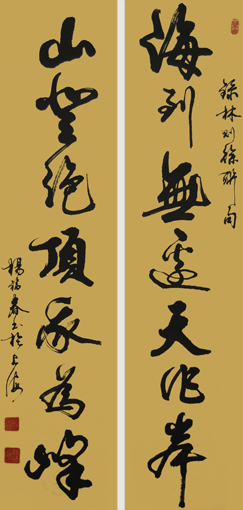 海到無邊天作岸
錄林則徐聯句
山登絕頂我為峰
楊󠄀春書於上海